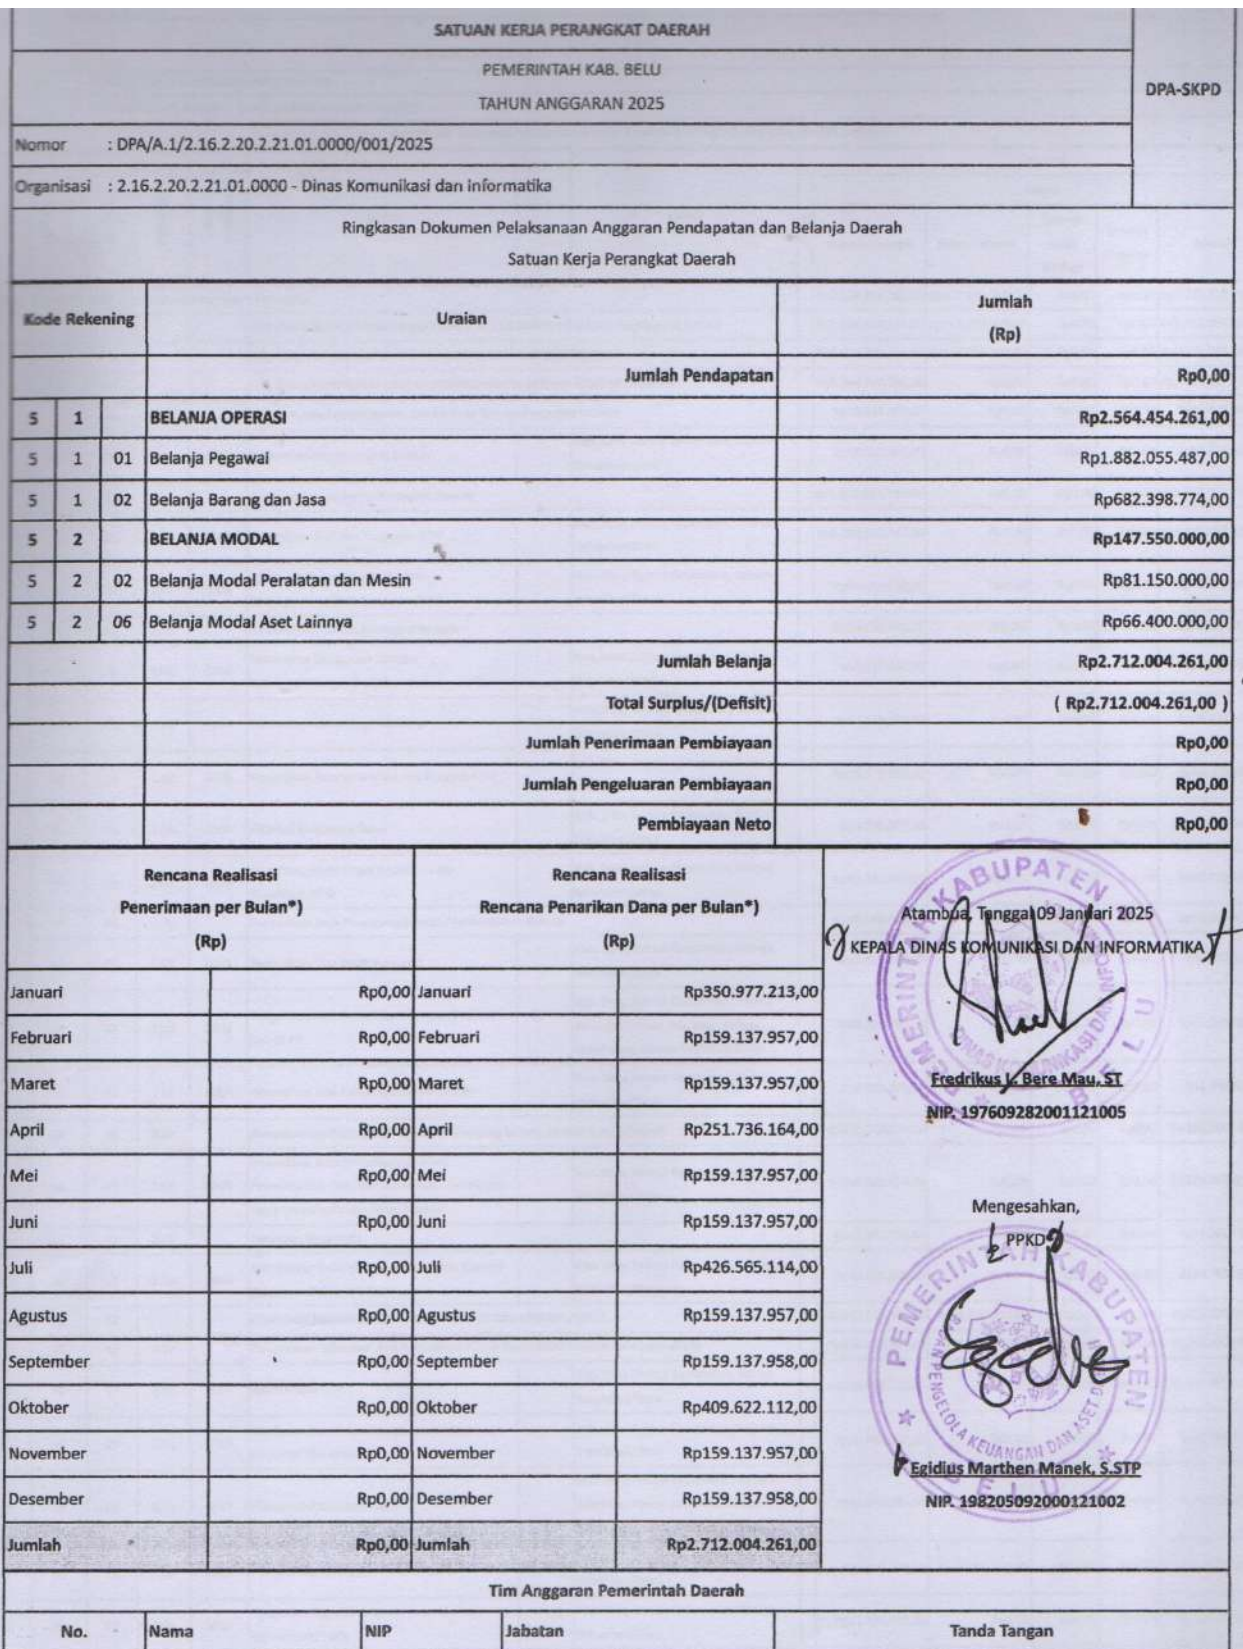 SATUAN KERJA PERANGKAT DAERAH
PEMERINTAH KAB. BELU
TAHUN ANGGARAN 2025
DPA-SKPD
Nomor : DPA/A.1/2.16.2.20.2.21.01.0000/001/2025
Organisasi : 2.16.2.20.2.21.01.0000 - Dinas Komunikasi dan informatika
Ringkasan Dokumen Pelaksanaan Anggaran Pendapatan dan Belanja Daerah
Satuan Kerja Perangkat Daerah
Kode Rekening Uraian Jumlah
(Rp)
Jumlah Pendapatan Rp0,00
5 1 BELANJA OPERASI Rp2.564.454.261,00
5 1 01 Belanja Pegawai Rp1.882.055.487,00
5 1 02 Belanja Barang dan Jasa Rp682.398.774,00
5 2 BELANJA MODAL Rp147.550.000,00
5 2 02 Belanja Modal Peralatan dan Mesin Rp81.150.000,00
5 2 06 Belanja Modal Aset Lainnya Rp66.400.000,00
Jumlah Belanja Rp2.712.004.261,00
Total Surplus/(Defisit) ( Rp2.712.004.261,00 )
Jumlah Penerimaan Pembiayaan Rp0,00
Jumlah Pengeluaran Pembiayaan Rp0,00
Pembiayaan Neto Rp0,00
Rencana Realisasi
Penerimaan per Bulan*)
(Rp)
Rencana Realisasi
Rencana Penarikan Dana per Bulan*)
(Rp)
Januari Rp0,00 Januari Rp350.977.213,00
Februari Rp0,00 Februari Rp159.137.957,00
Maret Rp0,00 Maret Rp159.137.957,00
April Rp0,00 April Rp251.736.164,00
Mei Rp0,00 Mei Rp159.137.957,00
Juni Rp0,00 Juni Rp159.137.957,00
Juli Rp0,00 Juli Rp426.565.114,00
Agustus Rp0,00 Agustus Rp159.137.957,00
September Rp0,00 September Rp159.137.958,00
Oktober Rp0,00 Oktober Rp409.622.112,00
November Rp0,00 November Rp159.137.957,00
Desember Rp0,00 Desember Rp159.137.958,00
Jumlah Rp0,00 Jumlah Rp2.712.004.261,00
Atambua, Tanggal 09 Januari 2025
KEPALA DINAS KOMUNIKASI DAN INFORMATIKA
PEMERINTAH KABUPATEN
BELU
DINAS KOMUNIKASI DAN
Fredrikus L. Bere Mau, ST
NIP. 197609282001121005
Mengesahkan,
PPKD
PEMERINTAH KABUPATEN
BELU
PENGELOLA KEUANGAN DAN ASET
Egidius Marthen Manek, S.STP
NIP. 198205092000121002
Tim Anggaran Pemerintah Daerah
No. Nama NIP Jabatan Tanda Tangan